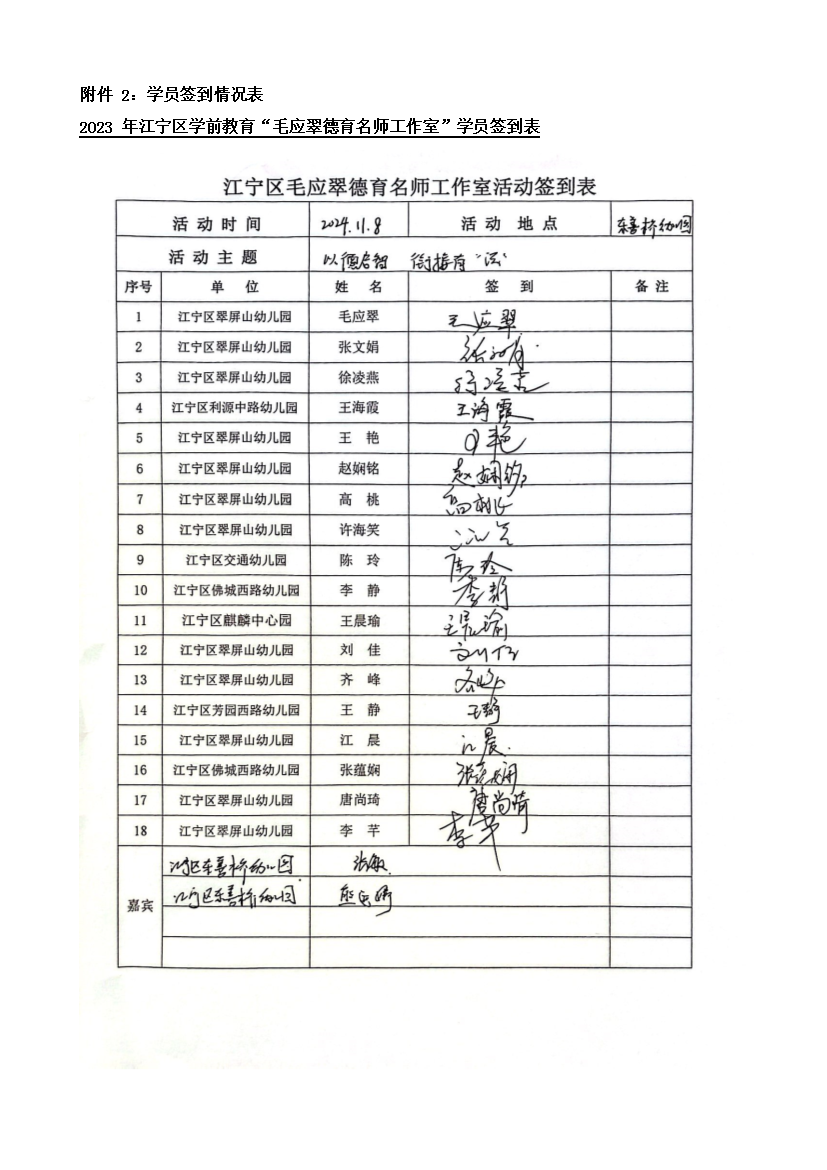 附件 2：学员签到情况表
2023 年江宁区学前教育“毛应翠德育名师工作室”学员签到表
江宁区毛应翠德育名师工作室活动签到表
活动时间 2024.11.8 活动 地点 东善桥幼儿园
活动主题 以德启智 衔接有“法”
序号 单 位 姓 名 签 到 备 注
1 江宁区翠屏山幼儿园 毛应翠 毛应翠
2 江宁区翠屏山幼儿园 张文娟 张文娟
3 江宁区翠屏山幼儿园 徐凌燕 徐凌燕
4 江宁区利源中路幼儿园 王海霞 王海霞
5 江宁区翠屏山幼儿园 王 艳 王艳
6 江宁区翠屏山幼儿园 赵娴铭 赵娴铭
7 江宁区翠屏山幼儿园 高 桃 高桃
8 江宁区翠屏山幼儿园 许海笑
9 江宁区交通幼儿园 陈 玲 陈玲
10 江宁区佛城西路幼儿园 李 静 李静
11 江宁区麒麟中心园 王晨瑜 王晨瑜
12 江宁区翠屏山幼儿园 刘 佳 刘佳
13 江宁区翠屏山幼儿园 齐 峰 齐峰
14 江宁区芳园西路幼儿园 王 静 王静
15 江宁区翠屏山幼儿园 江 晨 江晨
16 江宁区佛城西路幼儿园 张蕴娴 张蕴娴
17 江宁区翠屏山幼儿园 唐尚琦 唐尚琦
18 江宁区翠屏山幼儿园 李 芊 李芊
嘉宾
江宁区东善桥幼儿园 张敏
江宁区东善桥幼儿园